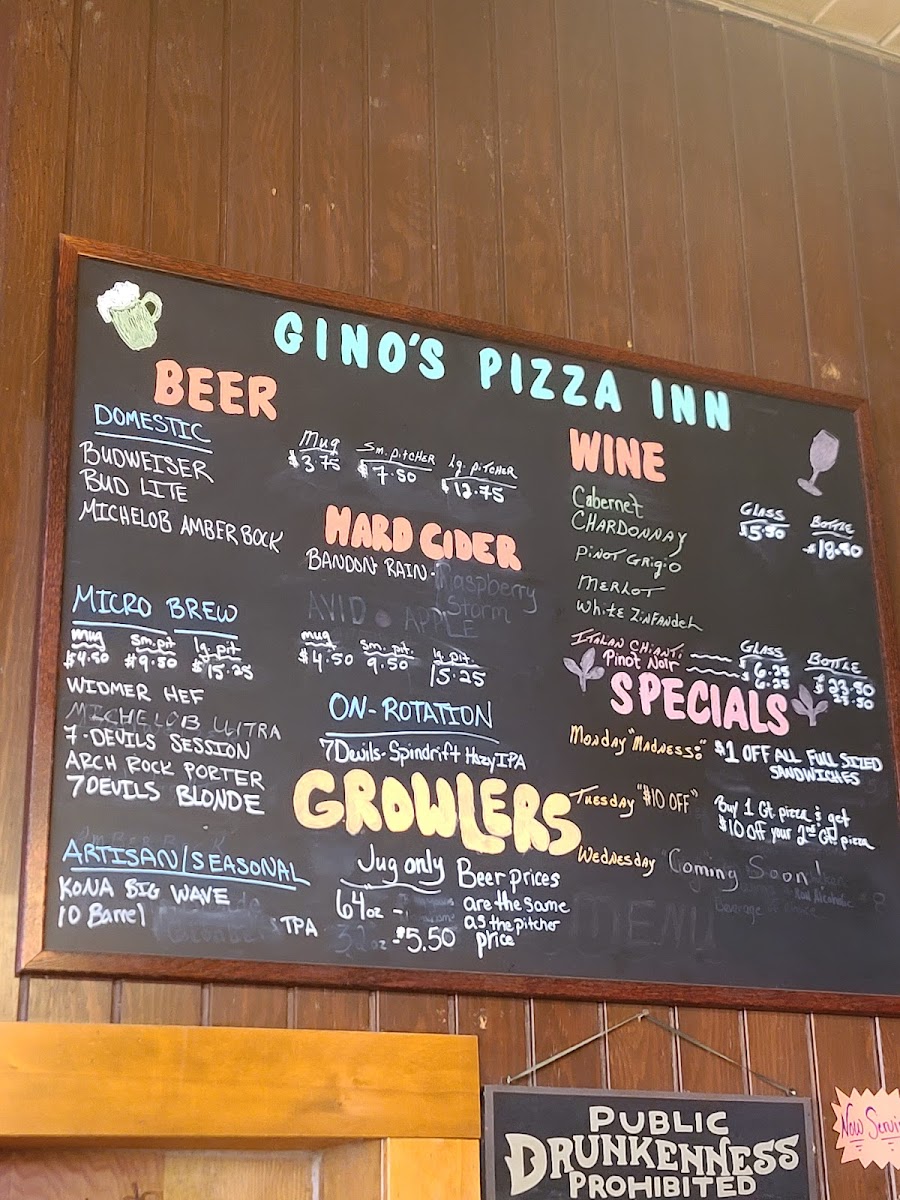 GINO'S PIZZA INN
BEER
DOMESTIC
BUDWEISER
BUD LITE
MICHELOB AMBER BOCK
Mug Sm. PITCHER Lg. PITCHER
$3.75 $7.50 $12.75
MICRO BREW
mug Sm. pit lg. pit
$4.50 $9.50 $15.25
WIDMER HEF
MICHELOB ULTRA
7-DEVILS SESSION
ARCH ROCK PORTER
7DEVILS BLONDE
ARTISAN/SEASONAL
KONA BIG WAVE
10 Barrel IPA
HARD CIDER
BANDON RAIN - Raspberry
Storm
AVID APPLE
mug Sm. pit. lg. pit.
$4.50 9.50 15.25
ON-ROTATION
7Devils-Spindrift Hazy IPA
GROWLERS
Jug only
64oz -
32oz -$5.50
Beer prices
are the same
as the pitcher
price
WINE
Cabernet
CHARDONNAY
PINOT GRIGIO
MERLOT
White ZINFANDEL
GLASS BOTTLE
$5.50 $18.50
ITALAN CHIANTI
Pinot Noir
GLASS BOTTLE
$6.25 $23.50
$6.25 $23.50
SPECIALS
Monday "MADNESS:" $1 OFF ALL FULL SIZED
SANDWICHES
Tuesday "$10 OFF" Buy 1 Gt. pizza & get
$10 off your 2nd Gt. pizza
Wednesday "Coming Soon!
Non Alcoholic
beverage
MENU
PUBLIC
DRUNKENNESS
PROHIBITED
Now Servi